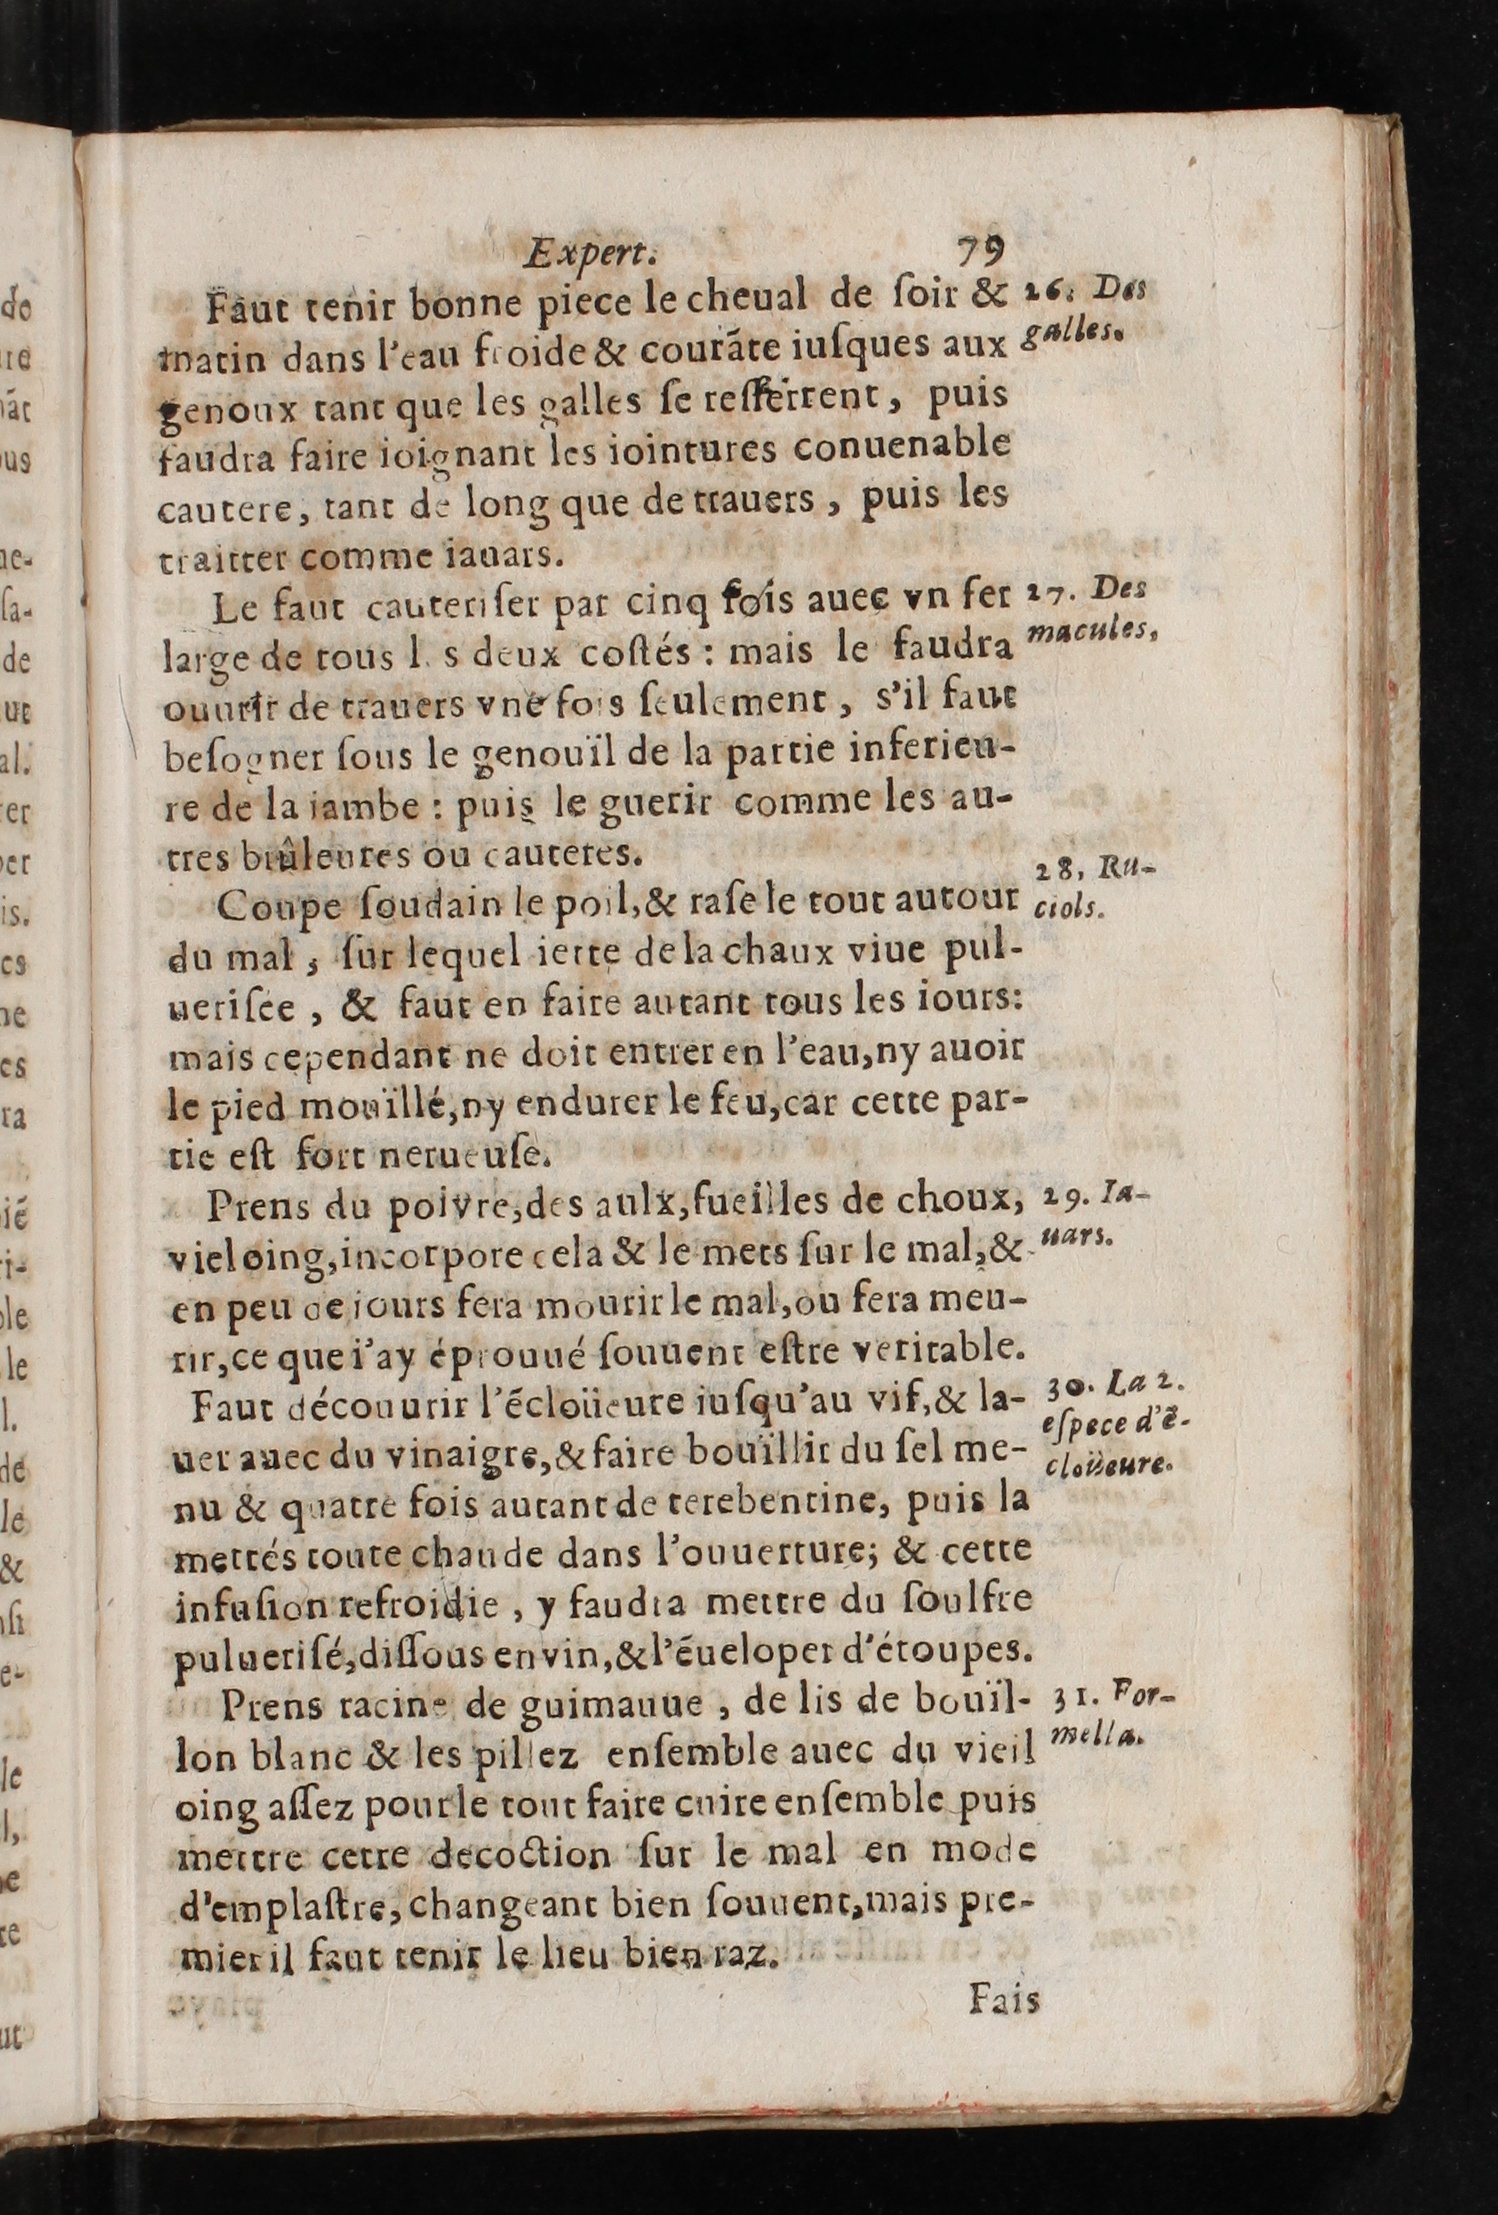 Expert. 79
Faut tenir bonne piece le cheual de ſoir &
matin dans l'eau froide & courãte iuſques aux
genoux tant que les galles ſe reſſerrent, puis
faudra faire ioignant les iointures conuenable
cautere, tant de long que de trauers, puis les
traitter comme iauars.
26. Des
galles.
Le faut cauteriſer par cinq fois auec vn fer
large de tous les deux coſtés : mais le faudra
ouurir de trauers vne fois ſeulement, s'il faut
beſogner ſous le genouïl de la partie inferieu-
re de la iambe : puis le guerir comme les au-
tres brûleures ou cauteres.
27. Des
macules,
Coupe ſoudain le poil, & raſe le tout autour
du mal, ſur lequel iette de la chaux viue pul-
ueriſée, & faut en faire autant tous les iours:
mais cependant ne doit entrer en l'eau, ny auoir
le pied mouïllé, ny endurer le feu, car cette par-
tie eſt fort nerueuſe.
28. Ru-
ciols.
Prens du poivre, des aulx, fueilles de choux,
viel oing, incorpore cela & le mets ſur le mal, &
en peu de iours fera mourir le mal, ou fera meu-
rir, ce que i'ay éprouué ſouuent eſtre veritable.
29. Ia-
uars.
Faut découurir l'ẽcloüeure iuſqu'au vif, & la-
uer auec du vinaigre, & faire bouïllir du ſel me-
nu & quatre fois autant de terebentine, puis la
mettés toute chaude dans l'ouuerture; & cette
infuſion refroidie, y faudra mettre du ſoulfre
pulueriſé, diſſous en vin, & l'ẽueloper d'étoupes.
30. La 2.
eſpece d'ẽ-
cloüeure.
Prens racine de guimauue, de lis de bouïl-
lon blanc & les pillez enſemble auec du vieil
oing aſſez pour le tout faire cuire enſemble puis
mettre cette decoction ſur le mal en mode
d'emplaſtre, changeant bien ſouuent, mais pre-
mier il faut tenir le lieu bien raz.
31. For-
mella.
Fais